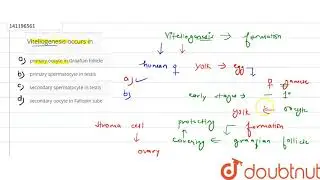 141196561
Vitellogenesis occurs in
a) primary oocyte in Graafian follicle
b) primary spermatocyte in testis
c) secondary spermatocyte in testis
d) secondary oocyte in Fallopin tube
Vitellogenesis → formation
human ♀ yolk → egg
a) ✓
b)
♀ gamete
early stages → 1°
yolk ← oocyte
stroma cell protecting formation
covering ← graafian follicle
ovary
doubtnut